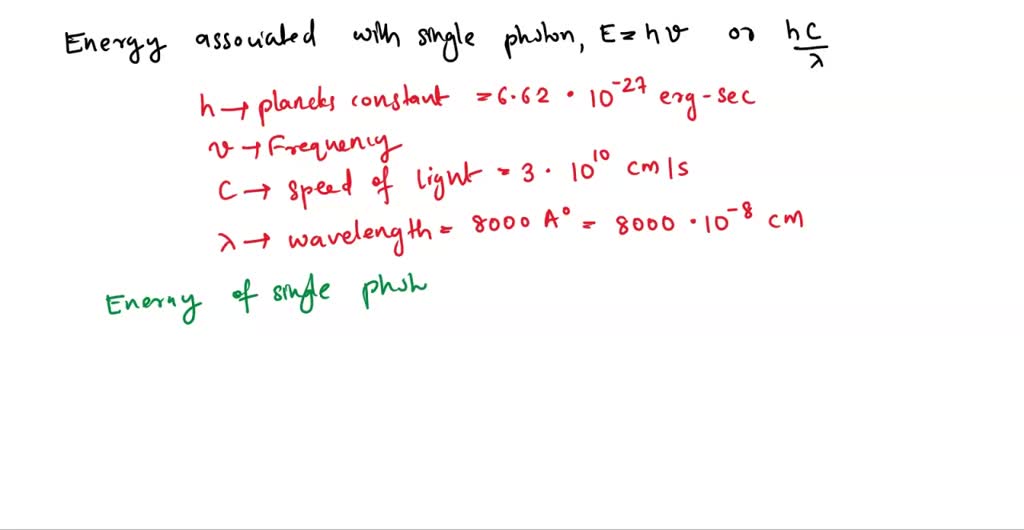 Energy associated with single photon, E = hν or hc/λ
h → plancks constant = 6.62 · 10⁻²⁷ erg-sec
ν → Frequency
C → Speed of light = 3 · 10¹⁰ cm/s
λ → wavelength = 8000 A° = 8000 · 10⁻⁸ cm
Energy of single phot